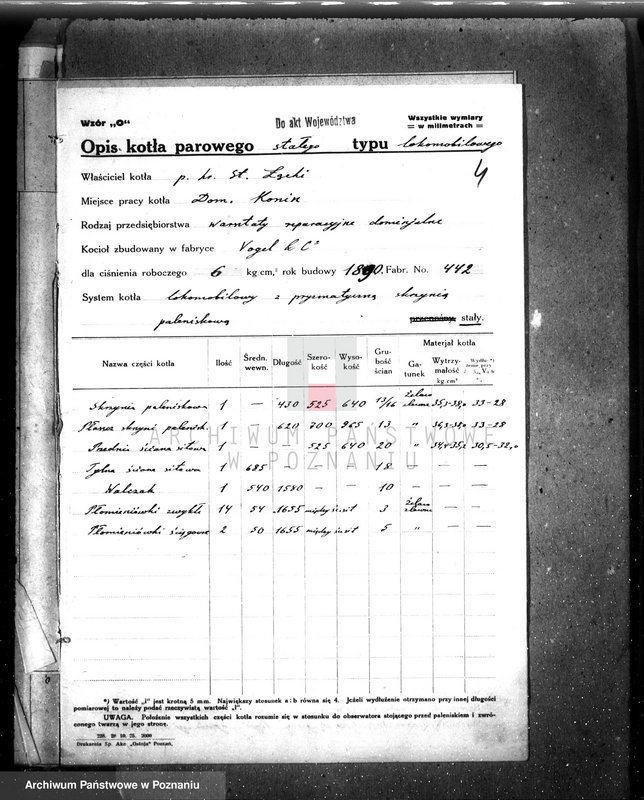 Wzór „O“
Do akt Województwa
Wszystkie wymiary
= w milimetrach =
Opis kotła parowego stałego typu lokomobilowego
4
Właściciel kotła p. hr. St. Łącki
Miejsce pracy kotła Dom. Konin
Rodzaj przedsiębiorstwa warsztaty reparacyjne dominjalne
Kocioł zbudowany w fabryce Vogel & Cº
dla ciśnienia roboczego 6 kg/cm,² rok budowy 1890. Fabr. No. 442
System kotła lokomobilowy z pryzmatyczną skrzynią
paleniskową przenośny stały.
Nazwa części kotła Ilość Średn. wewn. Długość Szerokość Wysokość Grubość ścian Materjał kotła Gatunek Wytrzymałość kg cm²
skrzynia paleniskowa 1 — 430 525 640 13/16 Żelazo zlewne 35,3-38,0 33-28
Płaszcz skrzyni palenisk. 1 — 620 700 965 13 „ 34,3-38,0 33-28
Przednia ściana sitowa 1 — 525 640 20 „ 34,4-35,2 30,5-32,0
Tylna ściana sitowa 1 685 — — — 18 — —
Walczak 1 540 1580 — — 10 — —
Płomieniówki zwykłe 14 54 1655 między ść. sit 3 Żelazo zlewne — —
Płomieniówki ściągowe 2 50 1655 między ść. sit 5 „ — —
ARCHIWUM PAŃSTWOWE
W POZNANIU
*) Wartość „l“ jest krotną 5 mm. Największy stosunek a : b równa się 4. Jeżeli wydłużenie otrzymano przy innej długości
pomiarowej to należy podać rzeczywistą wartość „l“.
UWAGA. Położenie wszystkich części kotła rozumie się w stosunku do obserwatora stojącego przed paleniskiem i zwró-
conego twarzą w jego stronę.
Drukarnia Sp. Akc. „Ostoja“ Poznań.
Archiwum Państwowe w Poznaniu